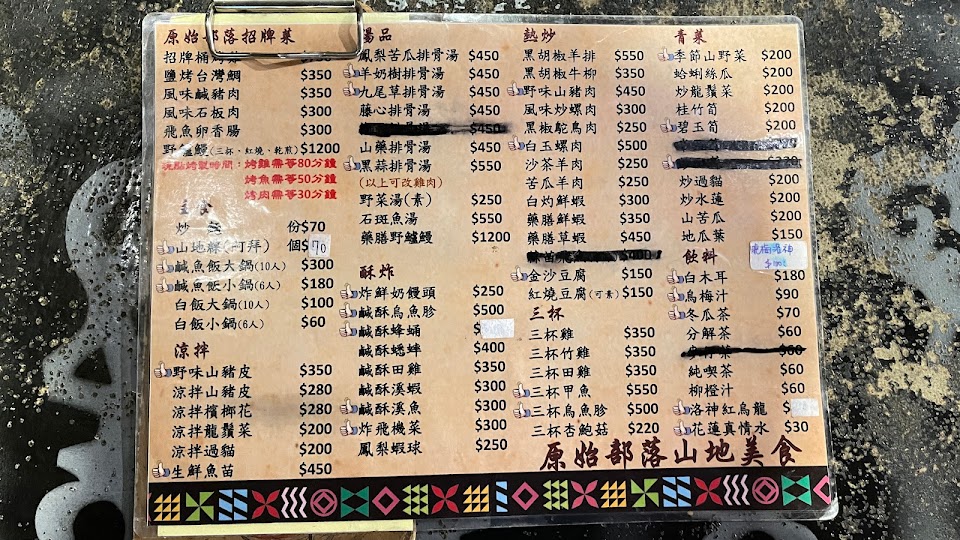 原始部落招牌菜
招牌桶烤
鹽烤台灣鯛 $350
風味鹹豬肉 $350
風味石板肉 $300
飛魚卵香腸 $300
野鱸鰻(三杯、紅燒、乾煎) $1200
現點烤製時間：烤雞需等80分鐘
烤魚需等50分鐘
烤肉需等30分鐘
主食
炒 份$70
山地粿(可拜) 個$70
鹹魚飯大鍋(10人) $300
鹹魚飯小鍋(6人) $180
白飯大鍋(10人) $100
白飯小鍋(6人) $60
涼拌
野味山豬皮 $350
涼拌山豬皮 $280
涼拌檳榔花 $280
涼拌龍鬚菜 $200
涼拌過貓 $200
生鮮魚苗 $450
湯品
鳳梨苦瓜排骨湯 $450
羊奶樹排骨湯 $450
九尾草排骨湯 $450
藤心排骨湯 $450
$450
山藥排骨湯 $450
黑蒜排骨湯 $550
(以上可改雞肉)
野菜湯(素) $250
石斑魚湯 $550
藥膳野鱸鰻 $1200
酥炸
炸鮮奶饅頭 $250
鹹酥烏魚胗 $500
鹹酥蜂蛹 $
鹹酥蟋蟀 $400
鹹酥田雞 $350
鹹酥溪蝦 $300
鹹酥溪魚 $300
炸飛機菜 $300
鳳梨蝦球 $250
熱炒
黑胡椒羊排 $550
黑胡椒牛柳 $350
野味山豬肉 $450
風味炒螺肉 $300
黑椒鴕鳥肉 $250
白玉螺肉 $500
沙茶羊肉 $250
苦瓜羊肉 $250
白灼鮮蝦 $300
藥膳鮮蝦 $350
藥膳草蝦 $450
金沙豆腐 $150
紅燒豆腐(可素) $150
三杯
三杯雞 $350
三杯竹雞 $350
三杯田雞 $350
三杯甲魚 $550
三杯烏魚胗 $500
三杯杏鮑菇 $220
青菜
季節山野菜 $200
蛤蜊絲瓜 $200
炒龍鬚菜 $200
桂竹筍 $200
碧玉筍 $200
炒過貓 $200
炒水蓮 $200
山苦瓜 $200
地瓜葉 $150
飲料
白木耳 $180
烏梅汁 $90
冬瓜茶 $70
分解茶 $60
$60
純喫茶 $60
柳橙汁 $60
洛神紅烏龍 $
花蓮真情水 $30
原始部落山地美食